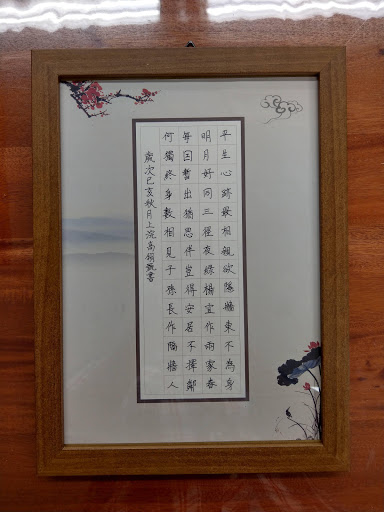 平生心跡最相親欲隱牆東不為身
明月好同三徑夜綠楊宜作兩家春
每因暫出猶思伴豈得安居不擇鄰
何獨終身數相見子孫長作隔牆人
歲次己亥秋月上浣高書